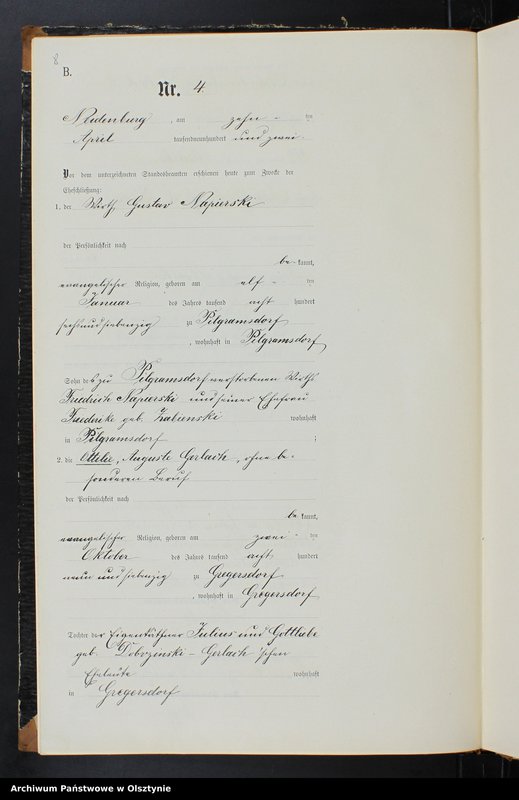 8
B.
Nr. 4.
Neidenburg, am zehn ten
April tausendneunhundert und zwei
Vor dem unterzeichneten Standesbeamten erschienen heute zum Zwecke der
Eheschließung:
1. der Wirth Gustav Napierski
der Persönlichkeit nach
be kannt,
evangelischer Religion, geboren am elf ten
Januar des Jahres tausend acht hundert
sechsundsiebenzig zu Pilgramsdorf
, wohnhaft in Pilgramsdorf
Sohn des zu Pilgramsdorf verstorbenen Wirths
Friedrich Napierski und seiner Ehefrau
Friederike geb. wohnhaft
in Pilgramsdorf ;
2. die Ottilie, Auguste Gerlach, ohne be-
sonderen Beruf
der Persönlichkeit nach
be kannt,
evangelischer Religion, geboren am zwei ten
Oktober des Jahres tausend acht hundert
neun und siebenzig zu Gregersdorf
, wohnhaft in Gregersdorf
Tochter der Eigenkäthner Julius und Gottliebe
geb. - Gerlach'schen
Eheleute wohnhaft
in Gregersdorf
Archiwum Państwowe w Olsztynie